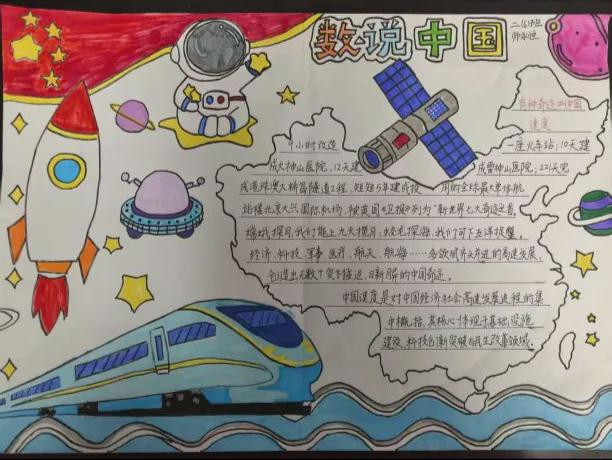 数说中国
二(6)班
百种奇迹 中国
速度
9小时改造 一座火车站;10天建
成火神山医院,12天建 成雷神山医院;221天完
成港珠澳大桥岛隧道工程,短短5年建成投 用的全球最大单体航
站楼北京大兴国际机场,被英国《卫报》列为“新世界七大奇迹之首。
嫦娥探月,我们能上九天揽月;蛟龙探海,我们可下五洋捉鳖。
经济、科技、军事、医疗、航天、航海……各领域齐头并进的高速发展,
创造出无数个突飞猛进、日新月异的中国奇迹。
中国速度是对中国经济社会高速发展进程的集
中概括,其核心体现于基础设施
建设、科技创新突破与民生改善领域。